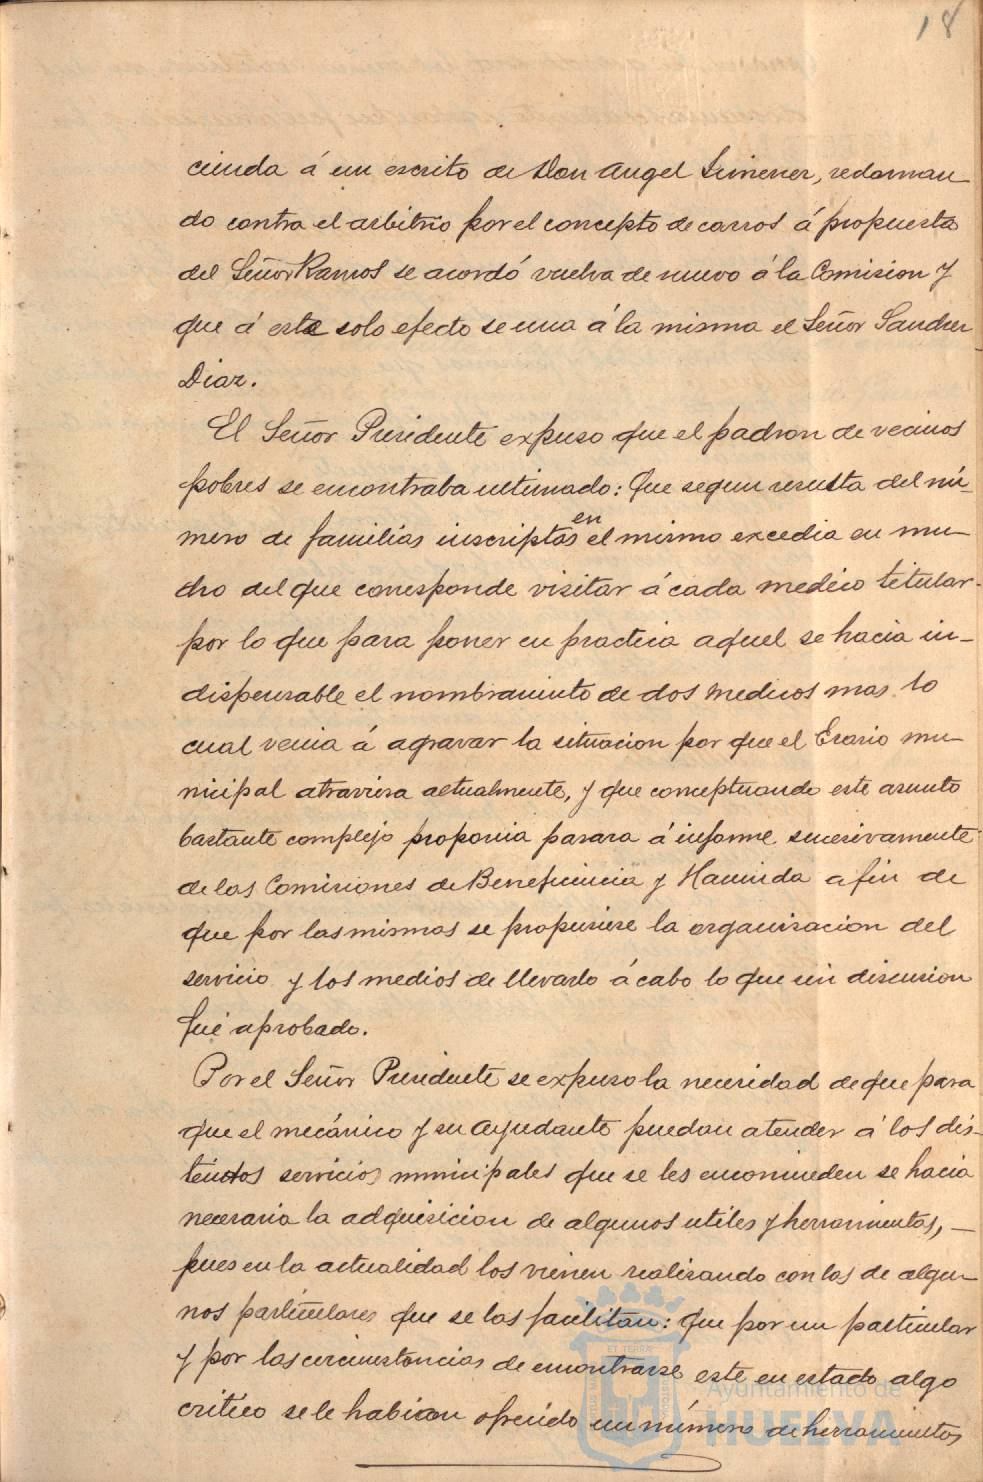 18
cienda á un escrito de Don Angel Jimenez, reclaman
do contra el arbitrio por el concepto de carros á propuesta
del Señor Ramos se acordó vuelva de nuevo á la Comision y
que á este solo efecto se una á la misma el Señor Sanchez
Diaz.
El Señor Presidente expuso que el padron de vecinos
pobres se encontraba ultimado: Que segun resulta del nú-
mero de familias inscriptas en el mismo excedia en mu-
cho del que corresponde visitar á cada medico titular-
por lo que para poner en practica aquel se hacia in-
dispensable el nombramiento de dos medicos mas lo
cual venia á agravar la situacion por que el Erario mu-
nicipal atraviesa actualmente, y que conceptuando este asunto
bastante complejo proponia pasara á informe sucesivamente
de las Comisiones de Beneficencia y Hacienda a fin de
que por las mismas se propusiese la organisacion del
servicio y los medios de llevarlo á cabo lo que sin discusion
fué aprobado.
Por el Señor Presidente se expuso la necesidad de que para
que el mecánico y su ayudante puedan atender á los dis-
tintos servicios municipales que se les encomienden se hacia
necesaria la adquisicion de algunos utiles y herramientas, —
pues en la actualidad los vienen realizando con las de algu-
nos particulares que se las facilitan: Que por un particular
y por las circunstancias de encontrarse este en estado algo
critico se le habian ofrecido un número de herramientas
ET TERRA
Ayuntamiento de
HUELVA